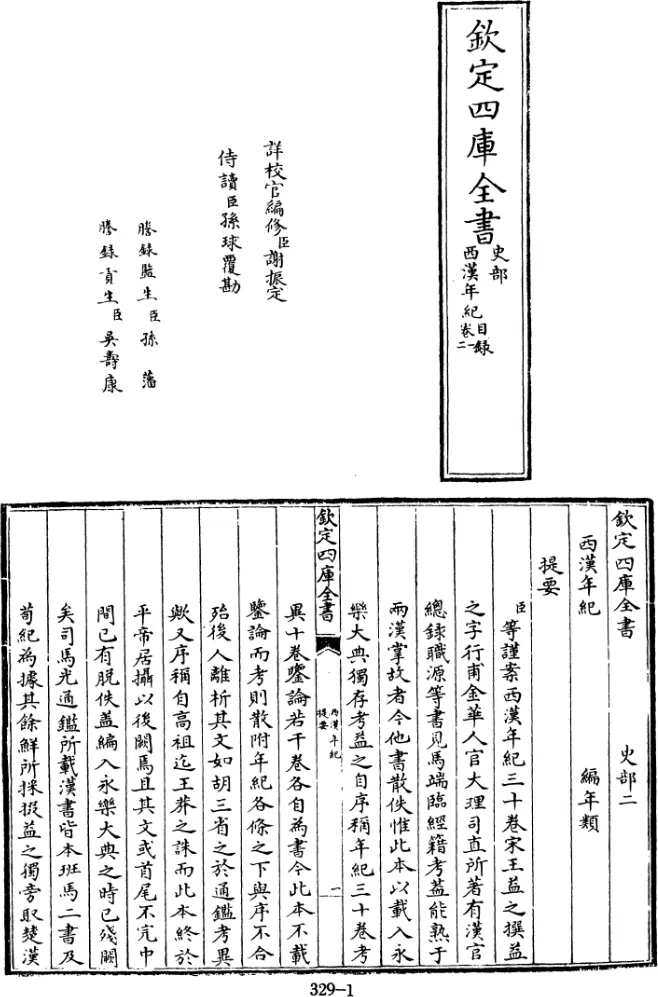 欽定四庫全書
史部
西漢年紀目録
卷一二
詳校官編修臣謝振定
侍讀臣孫球覆勘
謄録監生臣孫藩
謄録貢生臣吳壽康
欽定四庫全書 史部二
西漢年紀 編年類
提要
臣等謹案西漢年紀三十卷宋王益之撰益
之字行甫金華人官大理司直所著有漢官
總録職源等書見馬端臨經籍考蓋能熟于
兩漢掌故者今他書散佚惟此本以載入永
樂大典獨存考益之自序稱年紀三十卷考
欽定四庫全書
西漢年紀
提要
一
異十卷鑒論若干卷各自為書今此本不載
鑒論而考則散附年紀各條之下與序不合
殆後人離析其文如胡三省之於通鑑考異
歟又序稱自高祖迄王莽之誅而此本終於
平帝居攝以後闕焉且其文或首尾不完中
間已有脱佚蓋編入永樂大典之時已殘闕
矣司馬光通鑑所載漢書皆本班馬二書及
荀紀為據其餘鮮所採掇益之獨旁取楚漢
329-1